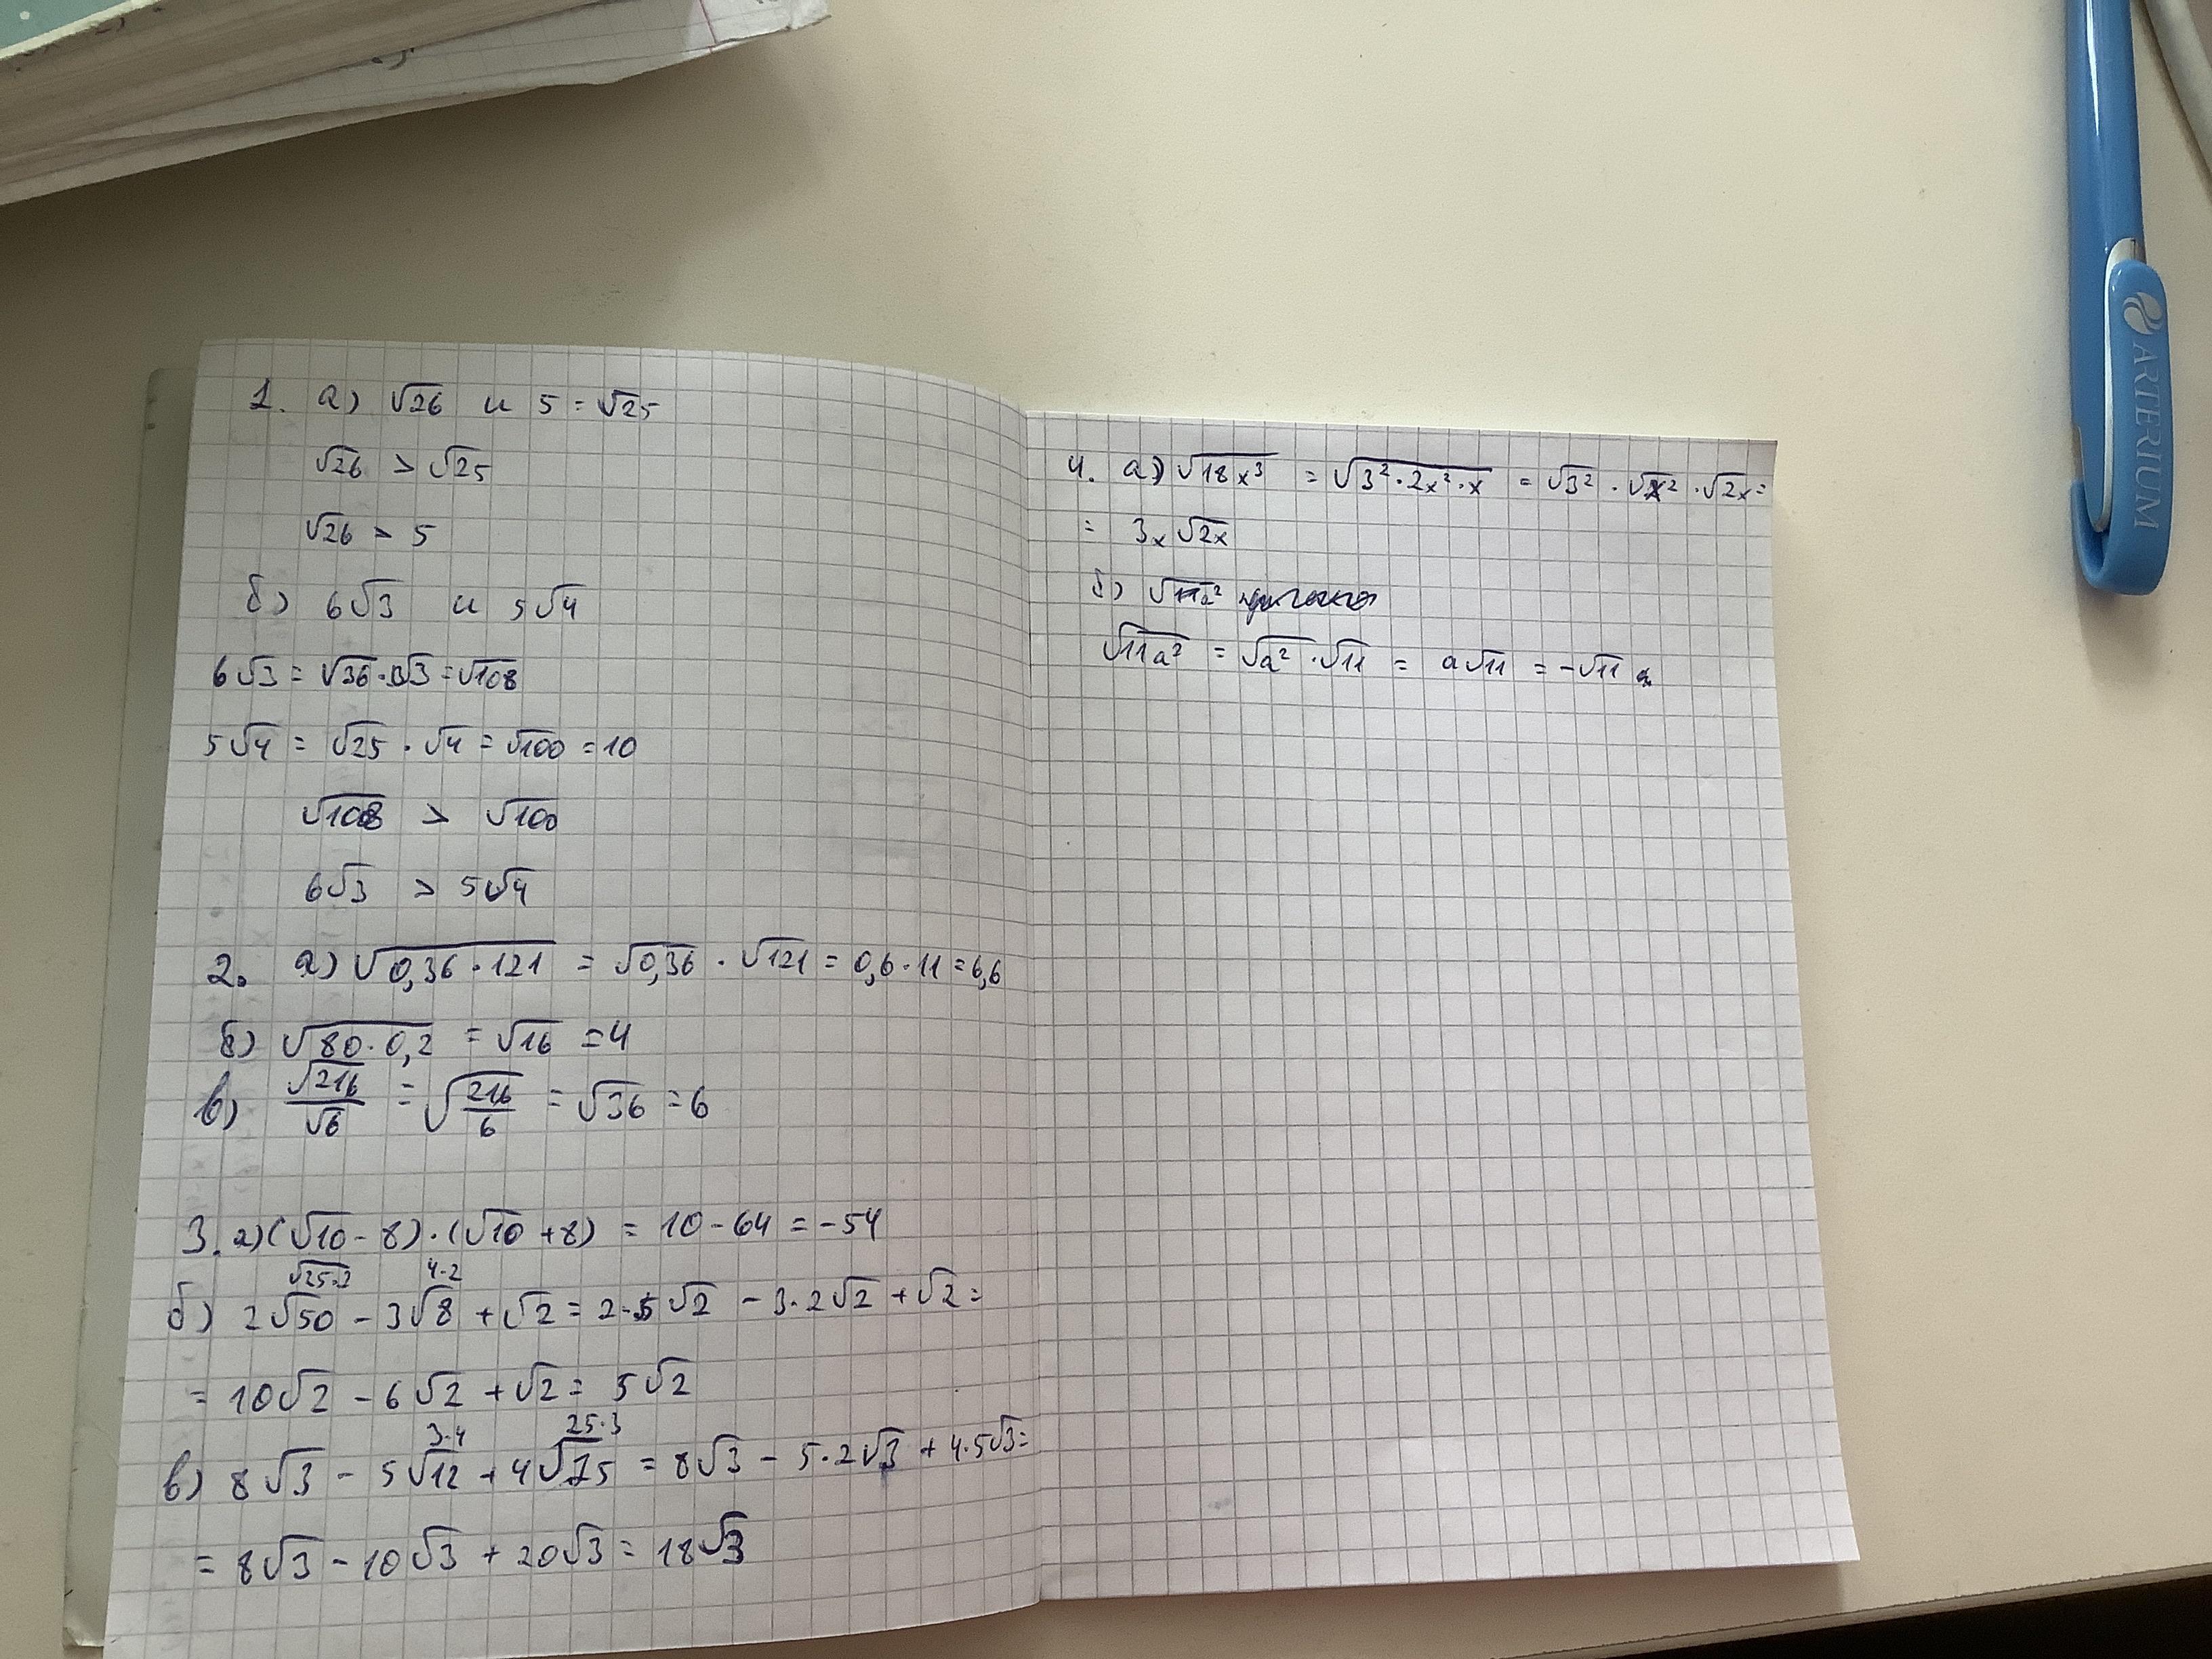 1. а) √26 и 5 = √25
√26 > √25
√26 > 5
б) 6√3 и 5√4
6√3 = √36 · √3 = √108
5√4 = √25 · √4 = √100 = 10
√108 > √100
6√3 > 5√4
2. а) √0,36 · 121 = √0,36 · √121 = 0,6 · 11 = 6,6
б) √80 · 0,2 = √16 = 4
в) √216/√6 = √216/6 = √36 = 6
3. а) (√10 - 8) · (√10 + 8) = 10 - 64 = -54
√25·2 4·2
б) 2√50 - 3√8 + √2 = 2·5√2 - 3·2√2 + √2 =
= 10√2 - 6√2 + √2 = 5√2
3·4 25·3
в) 8√3 - 5√12 + 4√75 = 8√3 - 5·2√3 + 4·5√3 =
= 8√3 - 10√3 + 20√3 = 18√3
4. а) √18x³ = √3² · 2x² · x = √3² · √x² · √2x =
= 3x√2x
б) √11a²
√11a² = √a² · √11 = a√11 = -√11 a
ARTERIUM